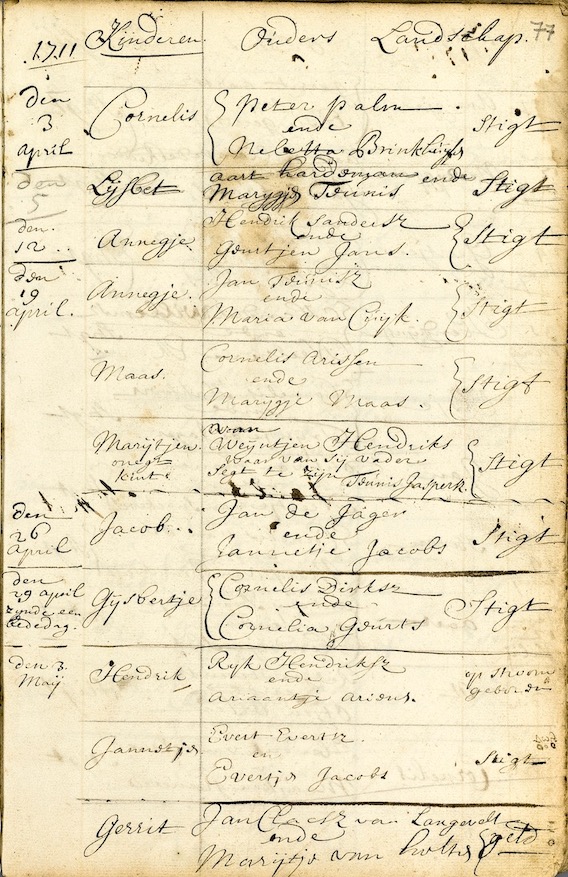 77
1711 Kinderen. Ouders Landschap.
den
3
april
Cornelis
Peter palm
ende
Neletta Brinkhuys
Stigt
den
5
Lijsbet
aart hardeman ende
Marygje Teunis
Stigt
den
12
Annegje.
Hendrik Sandersz
ende
Geurtjen Jans.
Stigt
den
19
april.
Annegje.
Jan Teunisz
ende
Maria van Cuyk.
Stigt
Maas.
Cornelis Arissen
ende
Marygje Maas.
Stigt
Marijtjen
onegt
kint
van
Weyntjen Hendriks
waar van sij vader
segt te zijn Teunis Jasperk.
Stigt
den
26
april
Jacob.
Jan de Jager
ende
Jannetje Jacobs
Stigt
den
29 april
zijnde een
bededag.
Gijsbertje
Cornelis Dirksz
ende
Cornelia Geurts
Stigt
den 3.
Maij
Hendrik
Ryk Hendriksz
ende
Ariaantje Ariens.
op stroom
geboren
Jannetje
Evert Evertsz.
en
Evertje Jacobs
Stigt
Gerrit
Jan Claesz van Langevelt
ende
Marijtje van holten
geld